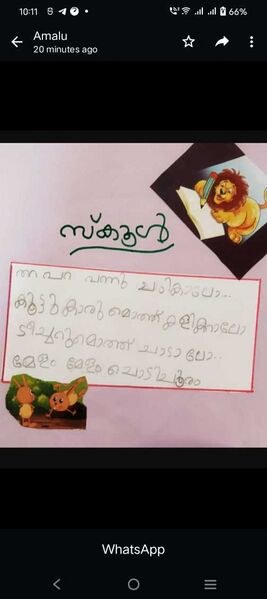 10:11
66%
Amalu
20 minutes ago
സ്കൂൾ
തറ പറ പന്ത് പഠിക്കാലോ...
കൂട്ടുകാരുമൊത്ത് കളിക്കാലോ
ടീച്ചറുമൊത്ത് പാടാലോ..
മേളം മേളം
WhatsApp